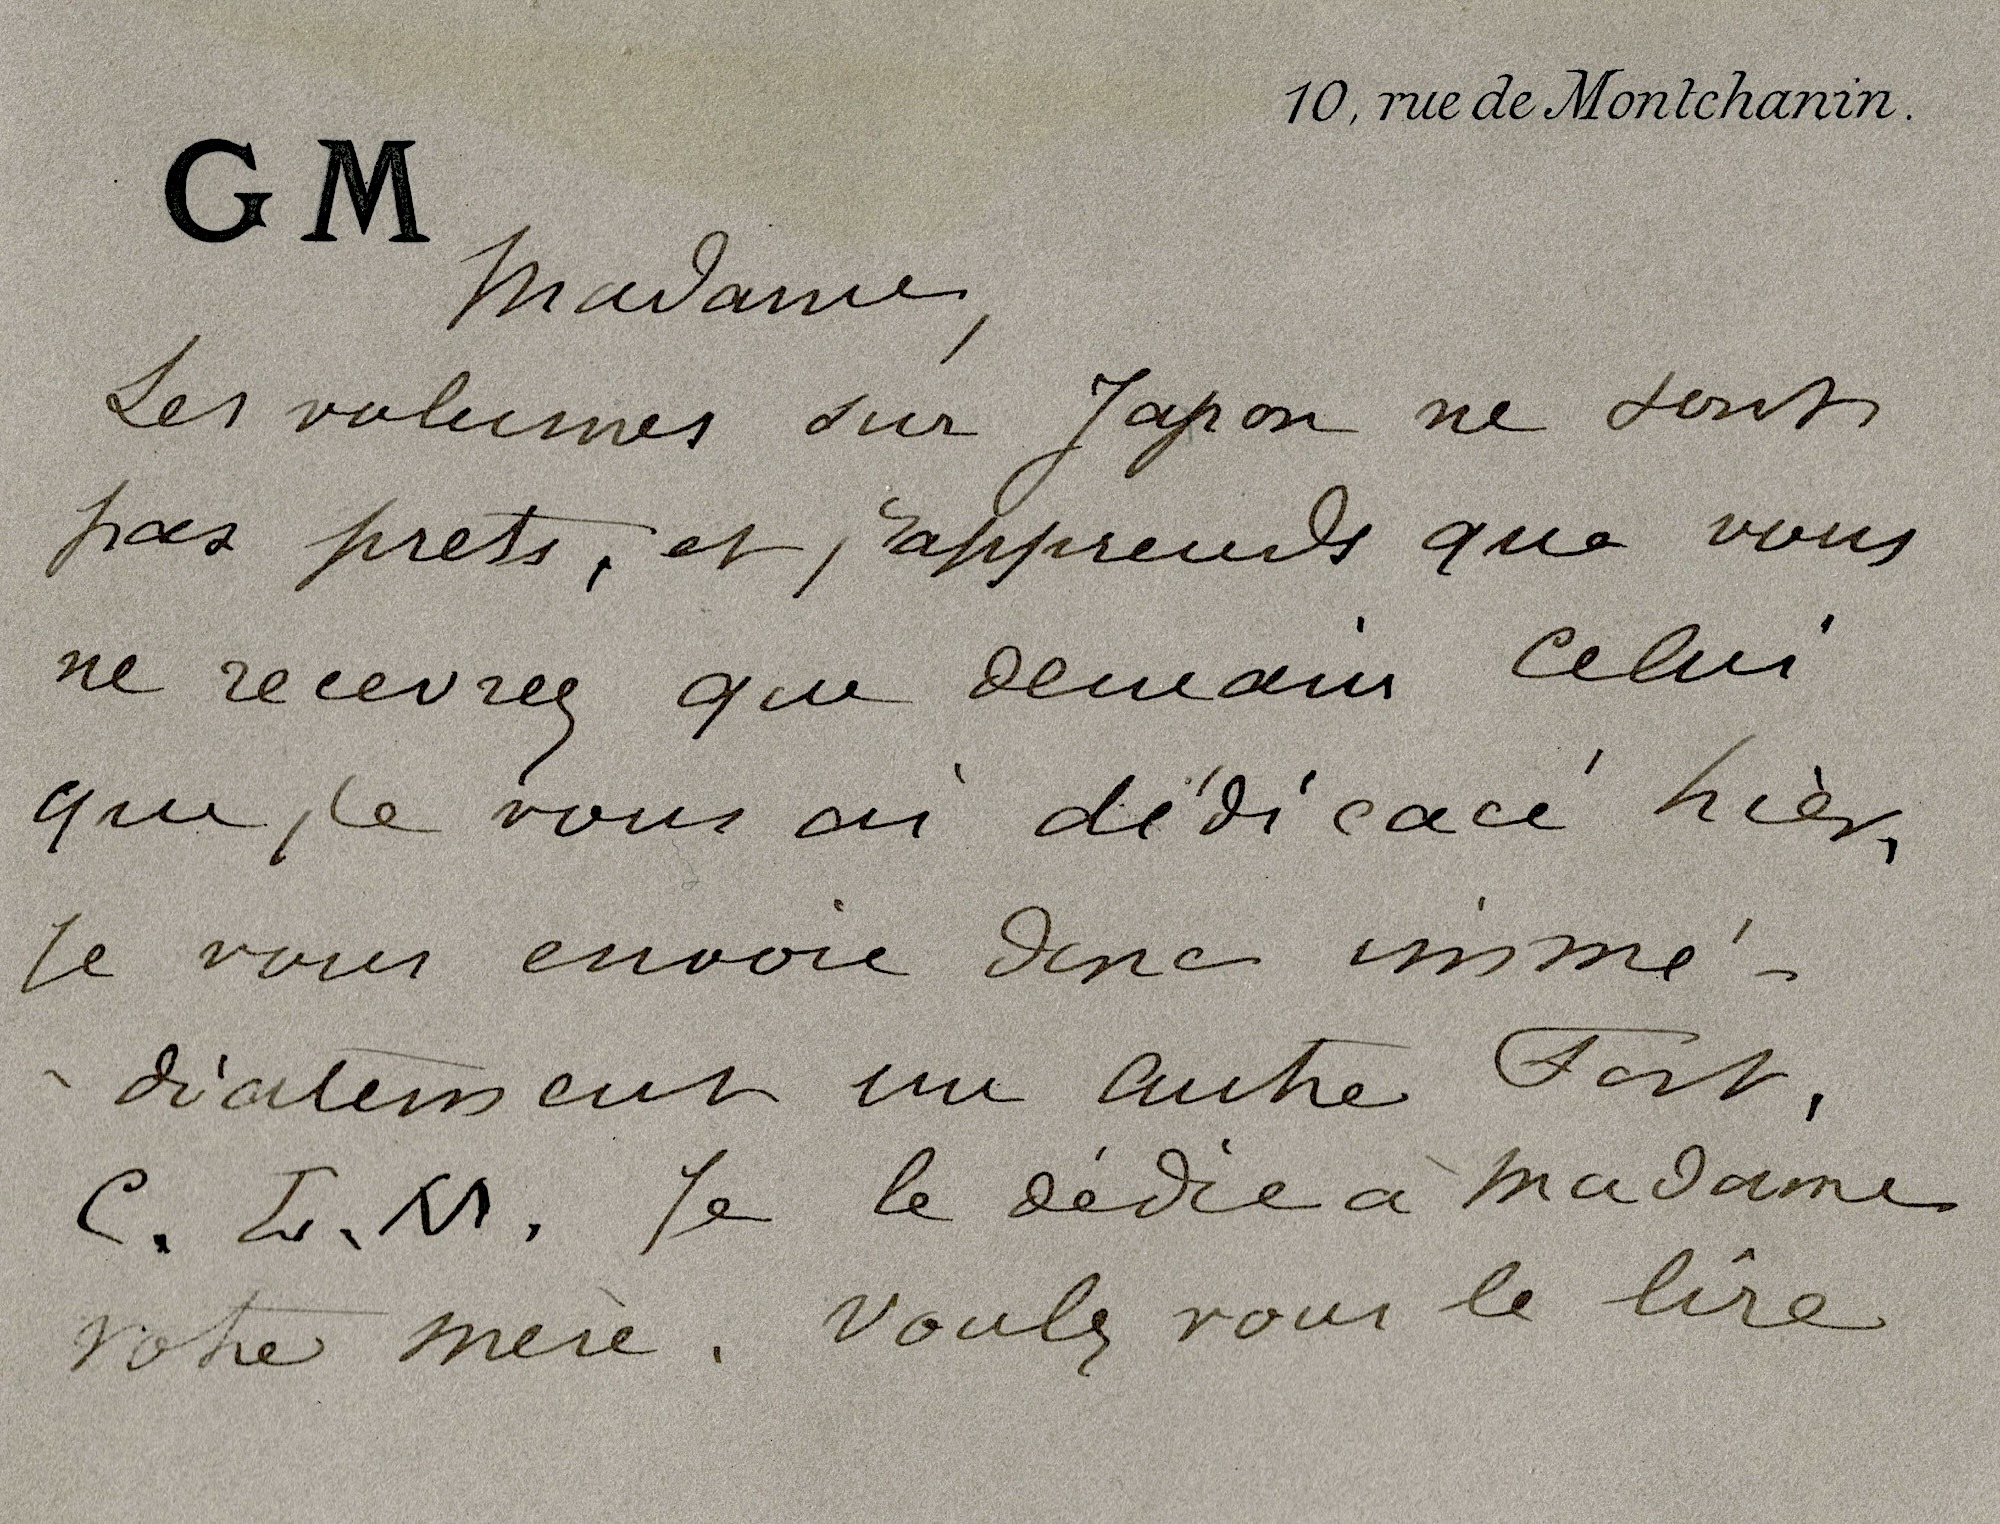 10, rue de Montchanin.
G M
Madame,
Les volumes sur Japon ne sont
pas prets, et j'apprends que vous
ne recevrez que demain celui
que je vous ai dédicacé hier,
Je vous envoie donc immé-
-diatement un autre Fort.
C. L. M. Je le dédie à Madame
votre mère. Voulez vous le lire